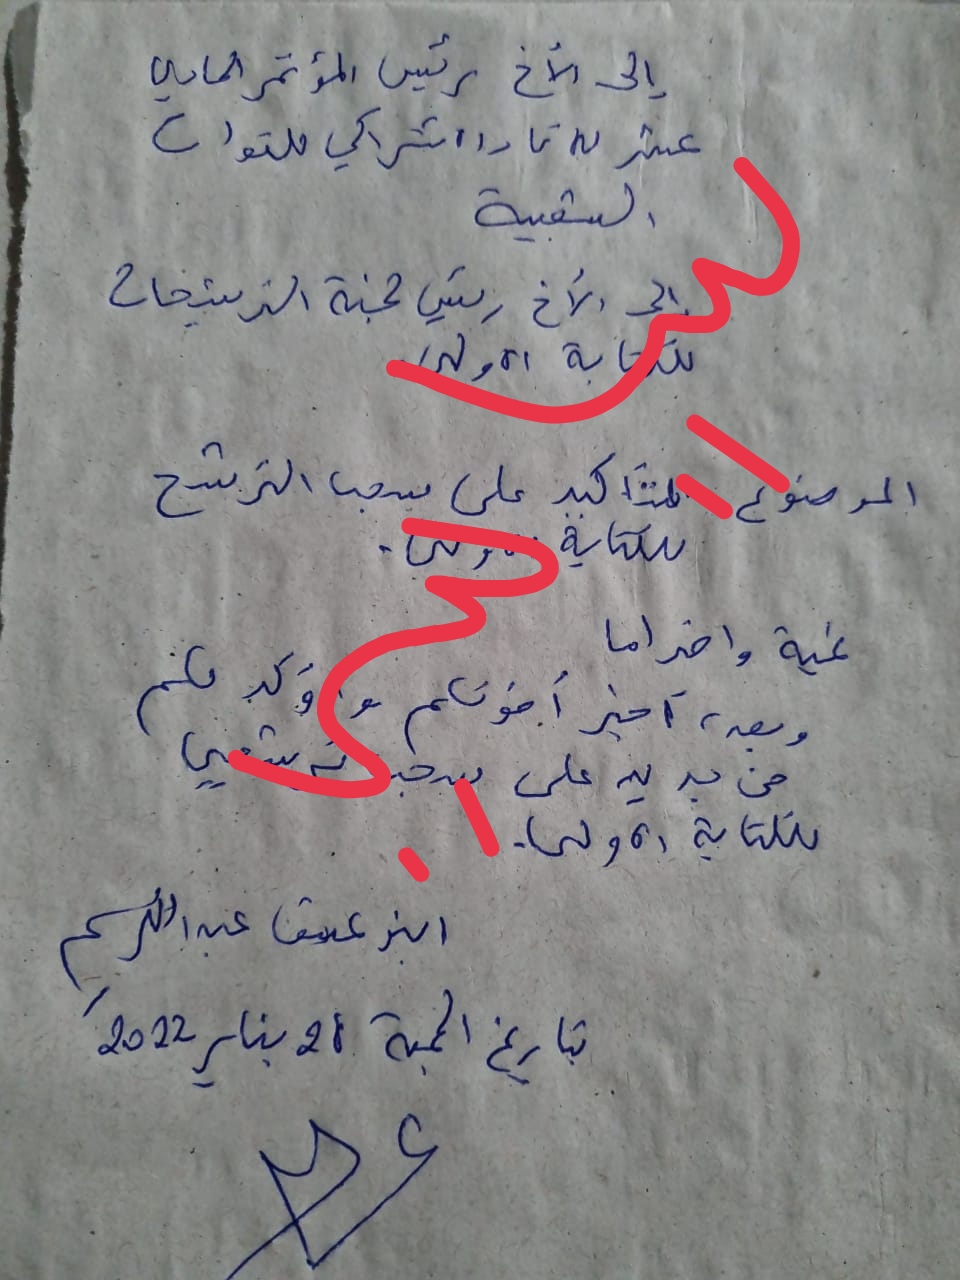 إلى الأخ رئيس المؤتمر الحادي
عشر للاتحاد الاشتراكي للقوات
الشعبية
إلى الأخ رئيس لجنة الترشيحات
للكتابة الاولى
الموضوع: التأكيد على سحب الترشح
للكتابة الاولى.
تحية واحتراما
وبعد، أخبر أخوتكم وأؤكد لكم
من جديد على سحب ترشحي
للكتابة الاولى.
ابنوعتيق عبد الكريم
بتاريخ الجمعة 28 يناير 2022